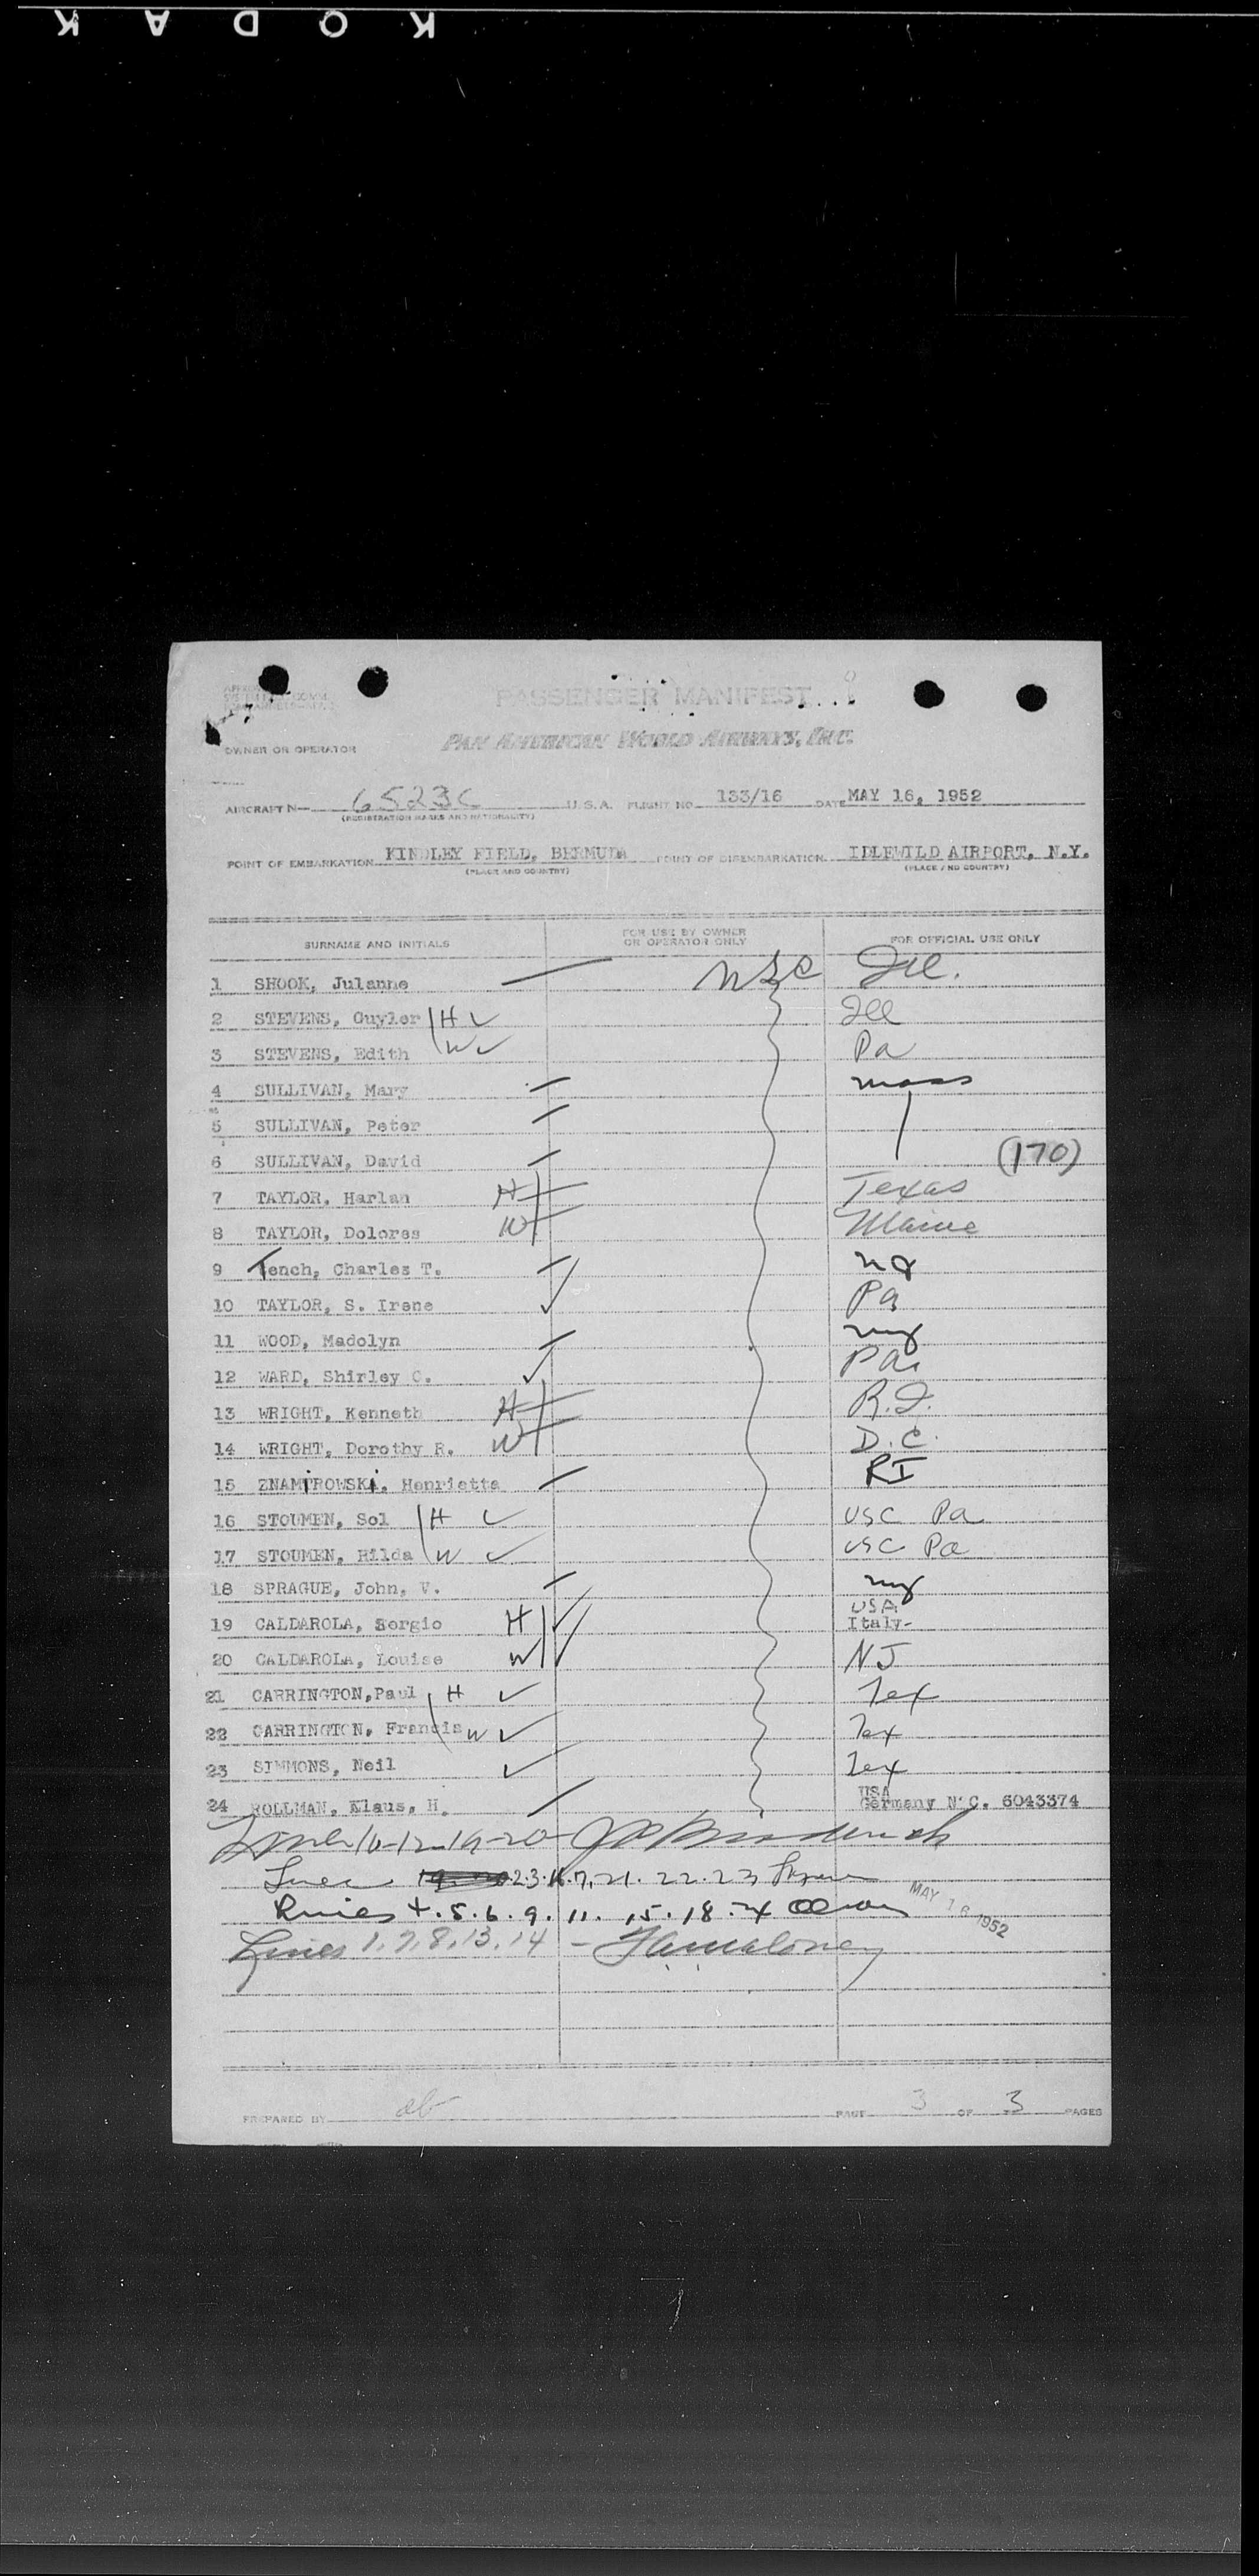 KODAK
PASSENGER MANIFEST
OWNER OR OPERATOR PAN AMERICAN WORLD AIRWAYS, INC.
AIRCRAFT N— 6523C U.S.A. FLIGHT NO. 133/16 DATE MAY 16, 1952
(REGISTRATION MARKS AND NATIONALITY)
POINT OF EMBARKATION KINDLEY FIELD, BERMUDA POINT OF DISEMBARKATION IDLEWILD AIRPORT, N.Y.
(PLACE AND COUNTRY) (PLACE AND COUNTRY)
SURNAME AND INITIALS FOR USE BY OWNER OR OPERATOR ONLY FOR OFFICIAL USE ONLY
1 SHOOK, Julanne USC Ill.
2 STEVENS, Guyler H Ill
3 STEVENS, Edith W Pa
4 SULLIVAN, Mary Mass
5 SULLIVAN, Peter
6 SULLIVAN, David (170)
7 TAYLOR, Harlan H Texas
8 TAYLOR, Dolores W Maine
9 Tench, Charles T.
10 TAYLOR, S. Irene Pa
11 WOOD, Madolyn ny
12 WARD, Shirley C. Pa.
13 WRIGHT, Kenneth H R.I.
14 WRIGHT, Dorothy R. W D.C.
15 ZNAMIROWSKI, Henrietta RI
16 STOUMEN, Sol H USC Pa
17 STOUMEN, Hilda W USC Pa
18 SPRAGUE, John, V. ny
19 CALDAROLA, Sergio H USA Italy-
20 CALDAROLA, Louise W NJ
21 CARRINGTON, Paul H Tex
22 CARRINGTON, Francis W Tex
23 SIMMONS, Neil Tex
24 ROLLMAN, Klaus, H. USA Germany N.C. 6043374
Lines 10-12-19-20
Lines 2.3.16.17.21.22.23
Lines 4.5.6.9.11.15.18.24
MAY 16 1952
Lines 1,7,8,13,14 - Maloney
PREPARED BY ab PAGE 3 OF 3 PAGES